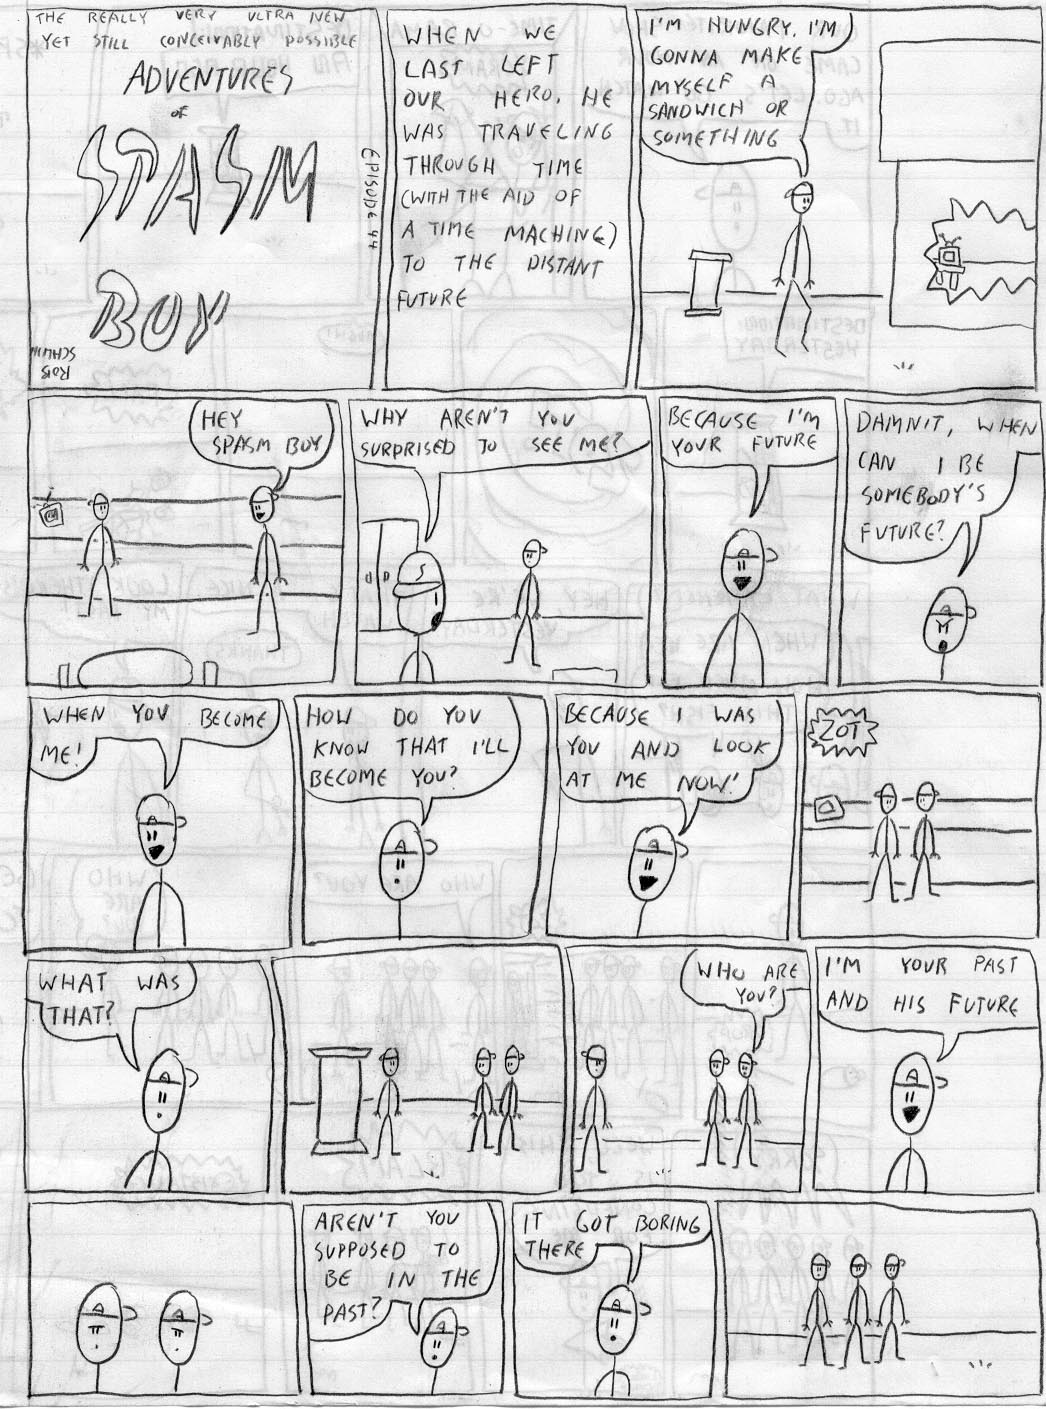 THE REALLY VERY ULTRA NEW
YET STILL CONCEIVABLY POSSIBLE
ADVENTURES
OF
SPASM
BOY
EPISODE 44
ROB
SCHWIN
WHEN WE
LAST LEFT
OUR HERO, HE
WAS TRAVELING
THROUGH TIME
(WITH THE AID OF
A TIME MACHINE)
TO THE DISTANT
FUTURE
I'M HUNGRY, I'M
GONNA MAKE
MYSELF A
SANDWICH OR
SOMETHING
HEY
SPASM BOY
WHY AREN'T YOU
SURPRISED TO SEE ME?
BECAUSE I'M
YOUR FUTURE
DAMNIT, WHEN
CAN I BE
SOMEBODY'S
FUTURE?
WHEN YOU BECOME
ME!
HOW DO YOU
KNOW THAT I'LL
BECOME YOU?
BECAUSE I WAS
YOU AND LOOK
AT ME NOW!
ZOT
WHAT WAS
THAT?
WHO ARE
YOU?
I'M YOUR PAST
AND HIS FUTURE
AREN'T YOU
SUPPOSED TO
BE IN THE
PAST?
IT GOT BORING
THERE